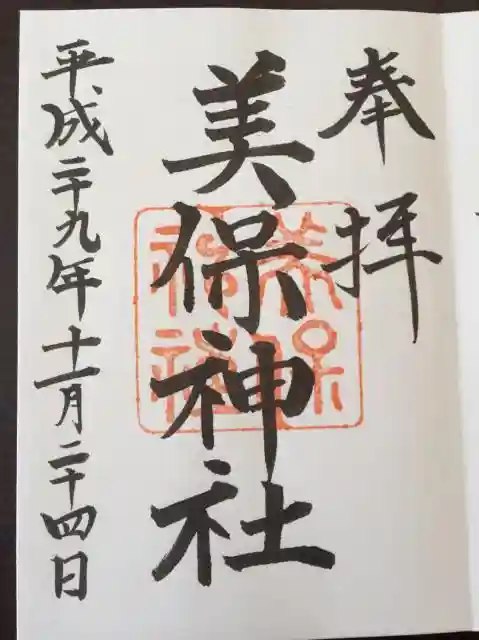 奉拝
美保神社
美保
神社
平成二十九年十一月二十四日